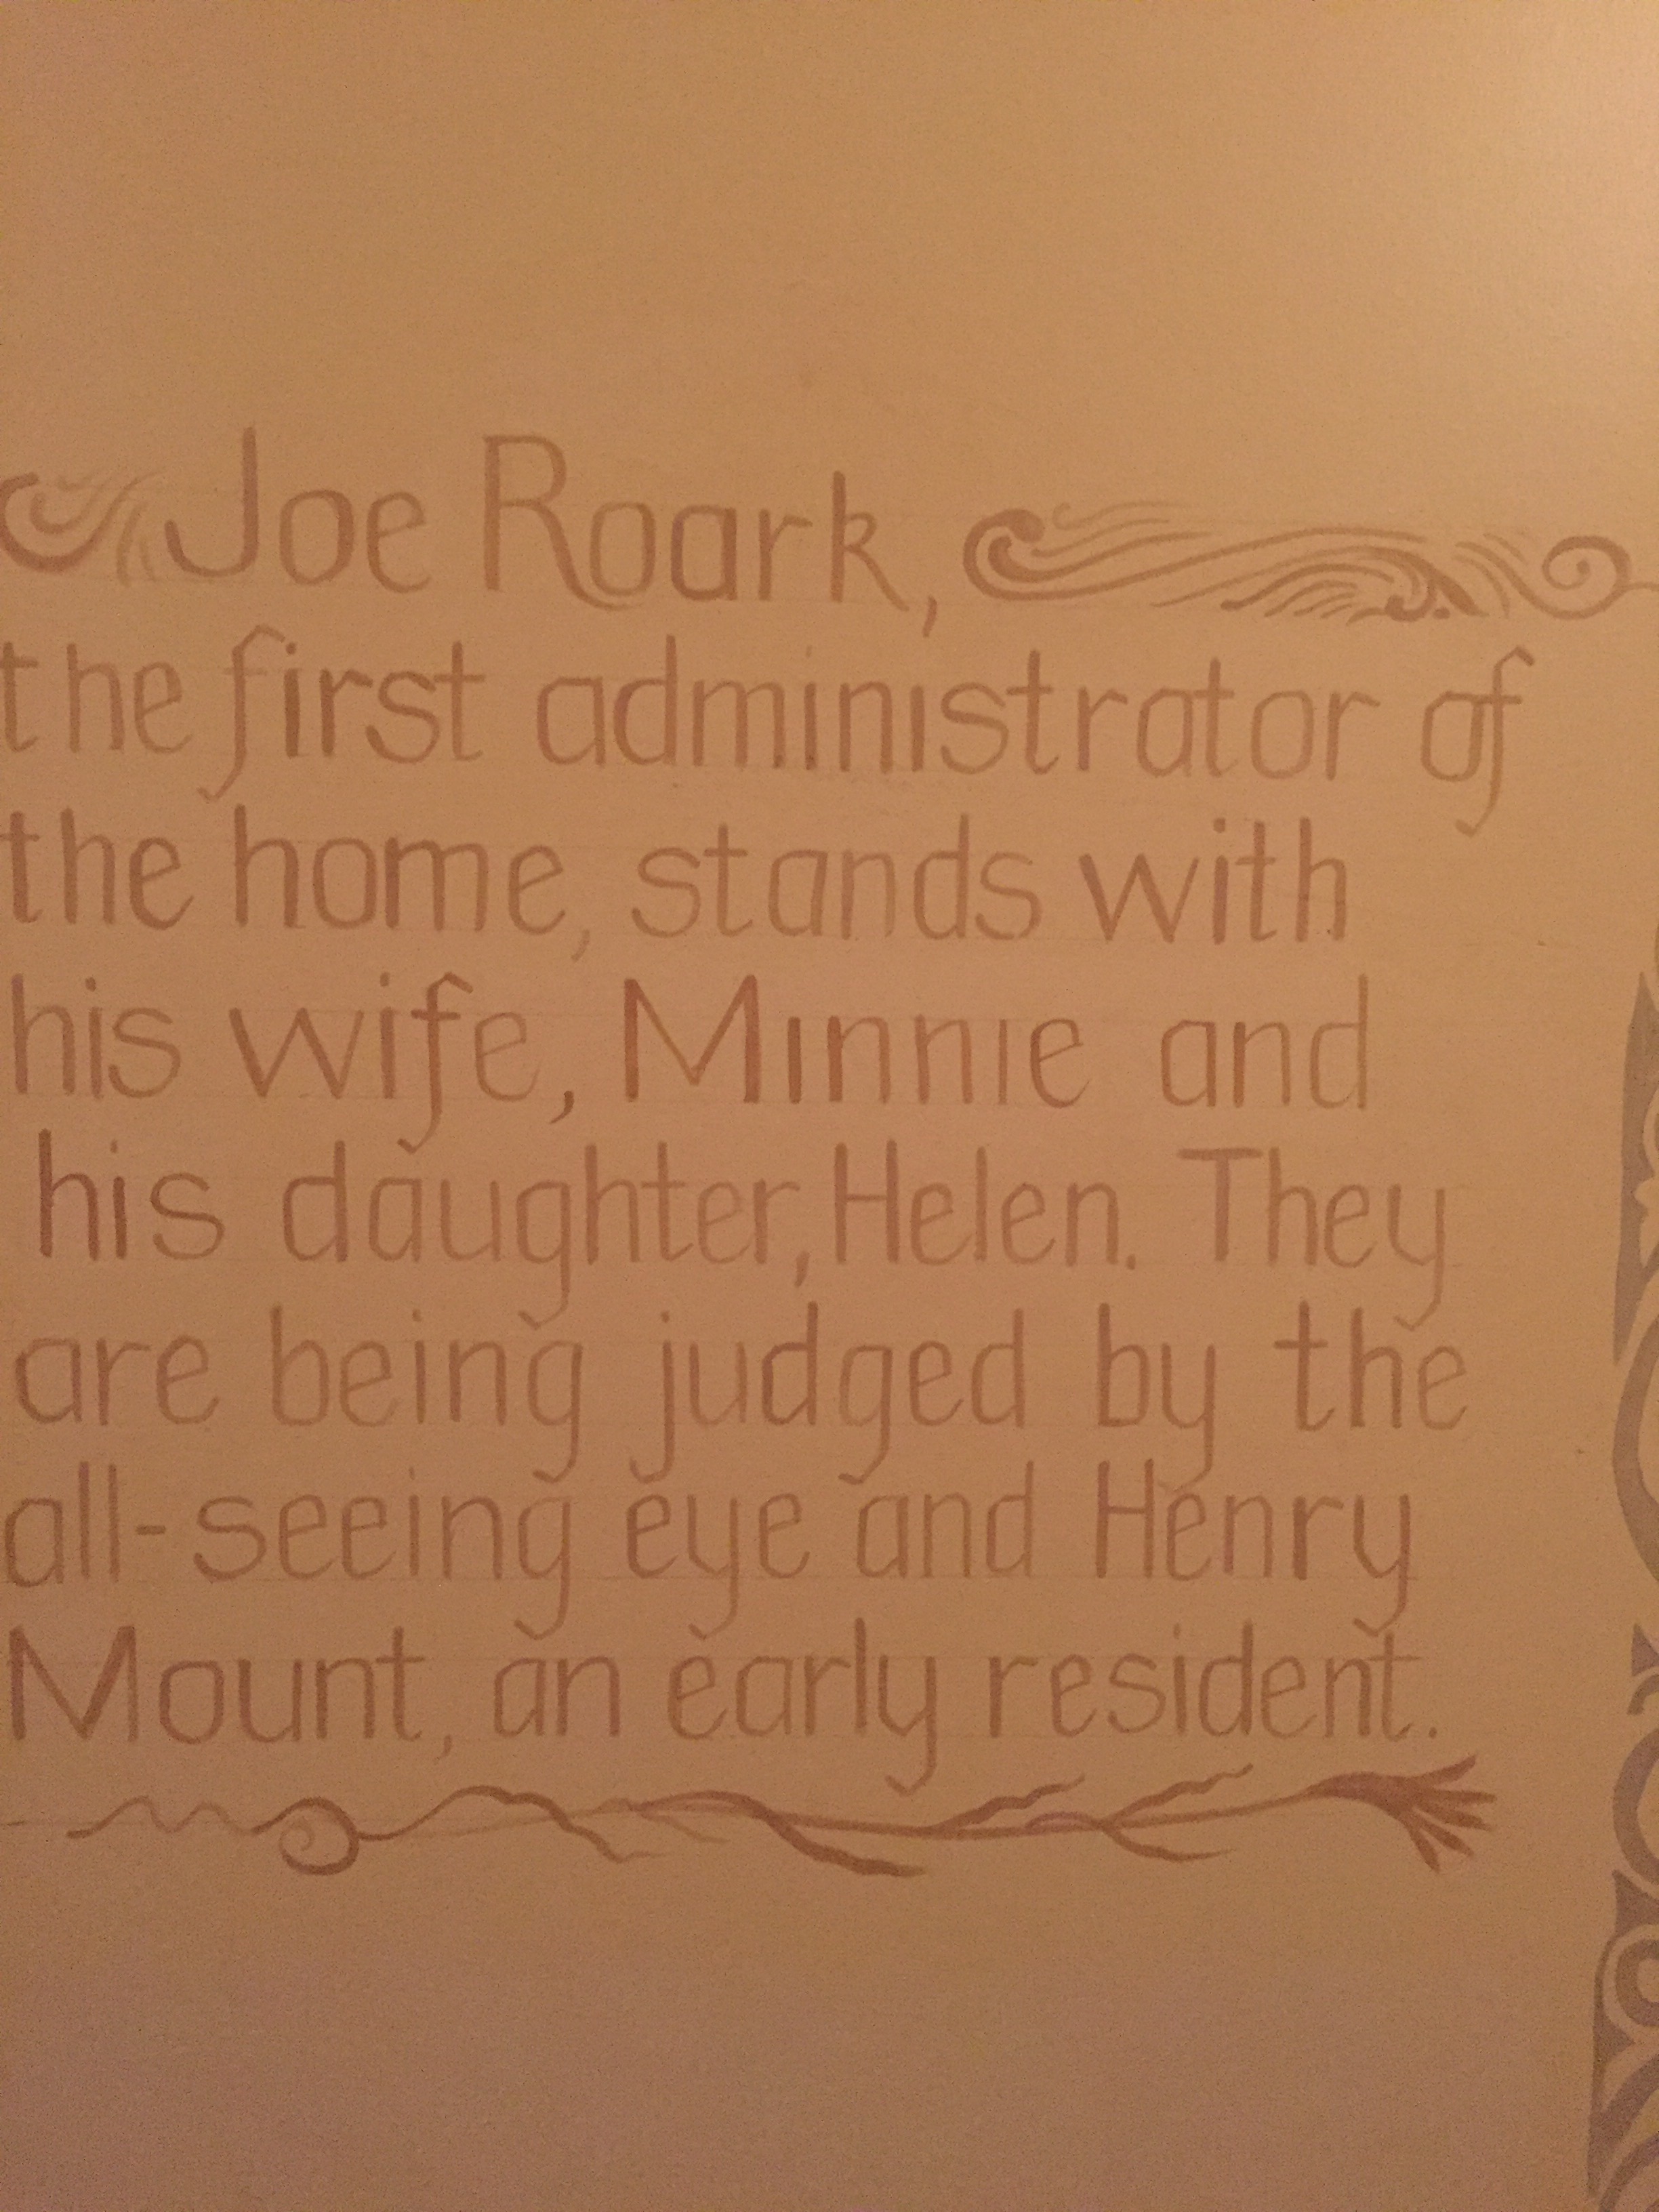 Joe Roark,
the first administrator of
the home, stands with
his wife, Minnie and
his daughter, Helen. They
are being judged by the
all-seeing eye and Henry
Mount, an early resident.